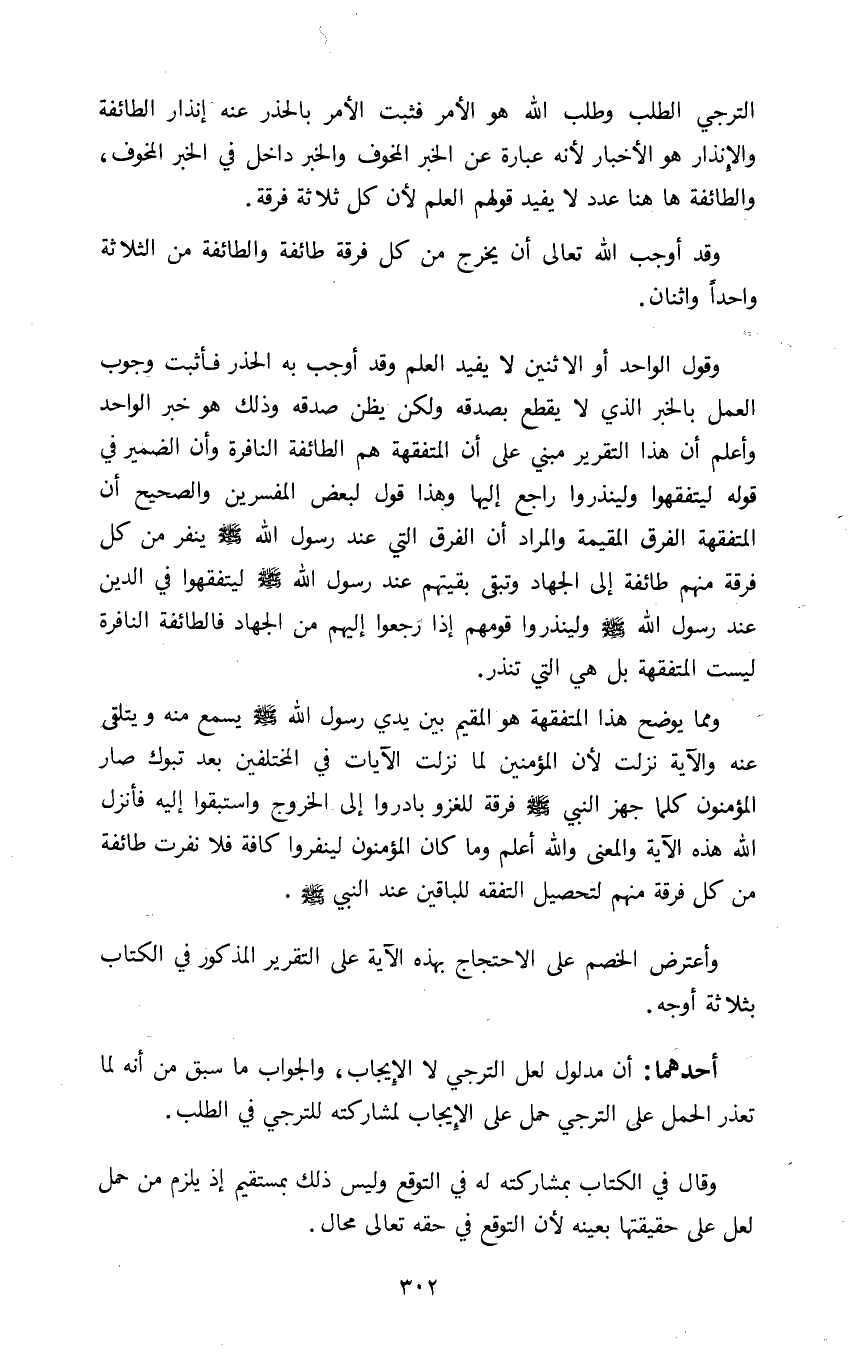 الترجي الطلب وطلب الله هو الأمر فثبت الأمر بالحذر عنه إنذار الطائفة
والإنذار هو الأخبار لأنه عبارة عن الخبر المخوف والخبر داخل في الخبر المخوف،
والطائفة ها هنا عدد لا يفيد قولهم العلم لأن كل ثلاثة فرقة.
وقد أوجب الله تعالى أن يخرج من كل فرقة طائفة والطائفة من الثلاثة
واحداً واثنان.
وقول الواحد أو الاثنين لا يفيد العلم وقد أوجب به الحذر فأثبت وجوب
العمل بالخبر الذي لا يقطع بصدقه ولكن يظن صدقه وذلك هو خبر الواحد
وأعلم أن هذا التقرير مبني على أن المتفقهة هم الطائفة النافرة وأن الضمير في
قوله ليتفقهوا ولينذروا راجع إليها وهذا قول لبعض المفسرين والصحيح أن
المتفقهة الفرق المقيمة والمراد أن الفرق التي عند رسول الله ﷺ ينفر من كل
فرقة منهم طائفة إلى الجهاد وتبقى بقيتهم عند رسول الله ﷺ ليتفقهوا في الدين
عند رسول الله ﷺ ولينذروا قومهم إذا رجعوا إليهم من الجهاد فالطائفة النافرة
ليست المتفقهة بل هي التي تنذر.
ومما يوضح هذا المتفقهة هو المقيم بين يدي رسول الله ﷺ يسمع منه ويتلقى
عنه والآية نزلت لأن المؤمنين لما نزلت الآيات في المختلفين بعد تبوك صار
المؤمنون كلما جهز النبي ﷺ فرقة للغزو بادروا إلى الخروج واستبقوا إليه فأنزل
الله هذه الآية والمعنى والله أعلم وما كان المؤمنون لينفروا كافة فلا نفرت طائفة
من كل فرقة منهم لتحصيل التفقه للباقين عند النبي ﷺ.
وأعترض الخصم على الاحتجاج بهذه الآية على التقرير المذكور في الكتاب
بثلاثة أوجه.
أحدهما: أن مدلول لعل الترجي لا الإيجاب، والجواب ما سبق من أنه لما
تعذر الحمل على الترجي حمل على الإيجاب لمشاركته للترجي في الطلب.
وقال في الكتاب بمشاركته له في التوقع وليس ذلك بمستقيم إذ يلزم من حمل
لعل على حقيقتها بعينه لأن التوقع في حقه تعالى محال.
٣٠٢